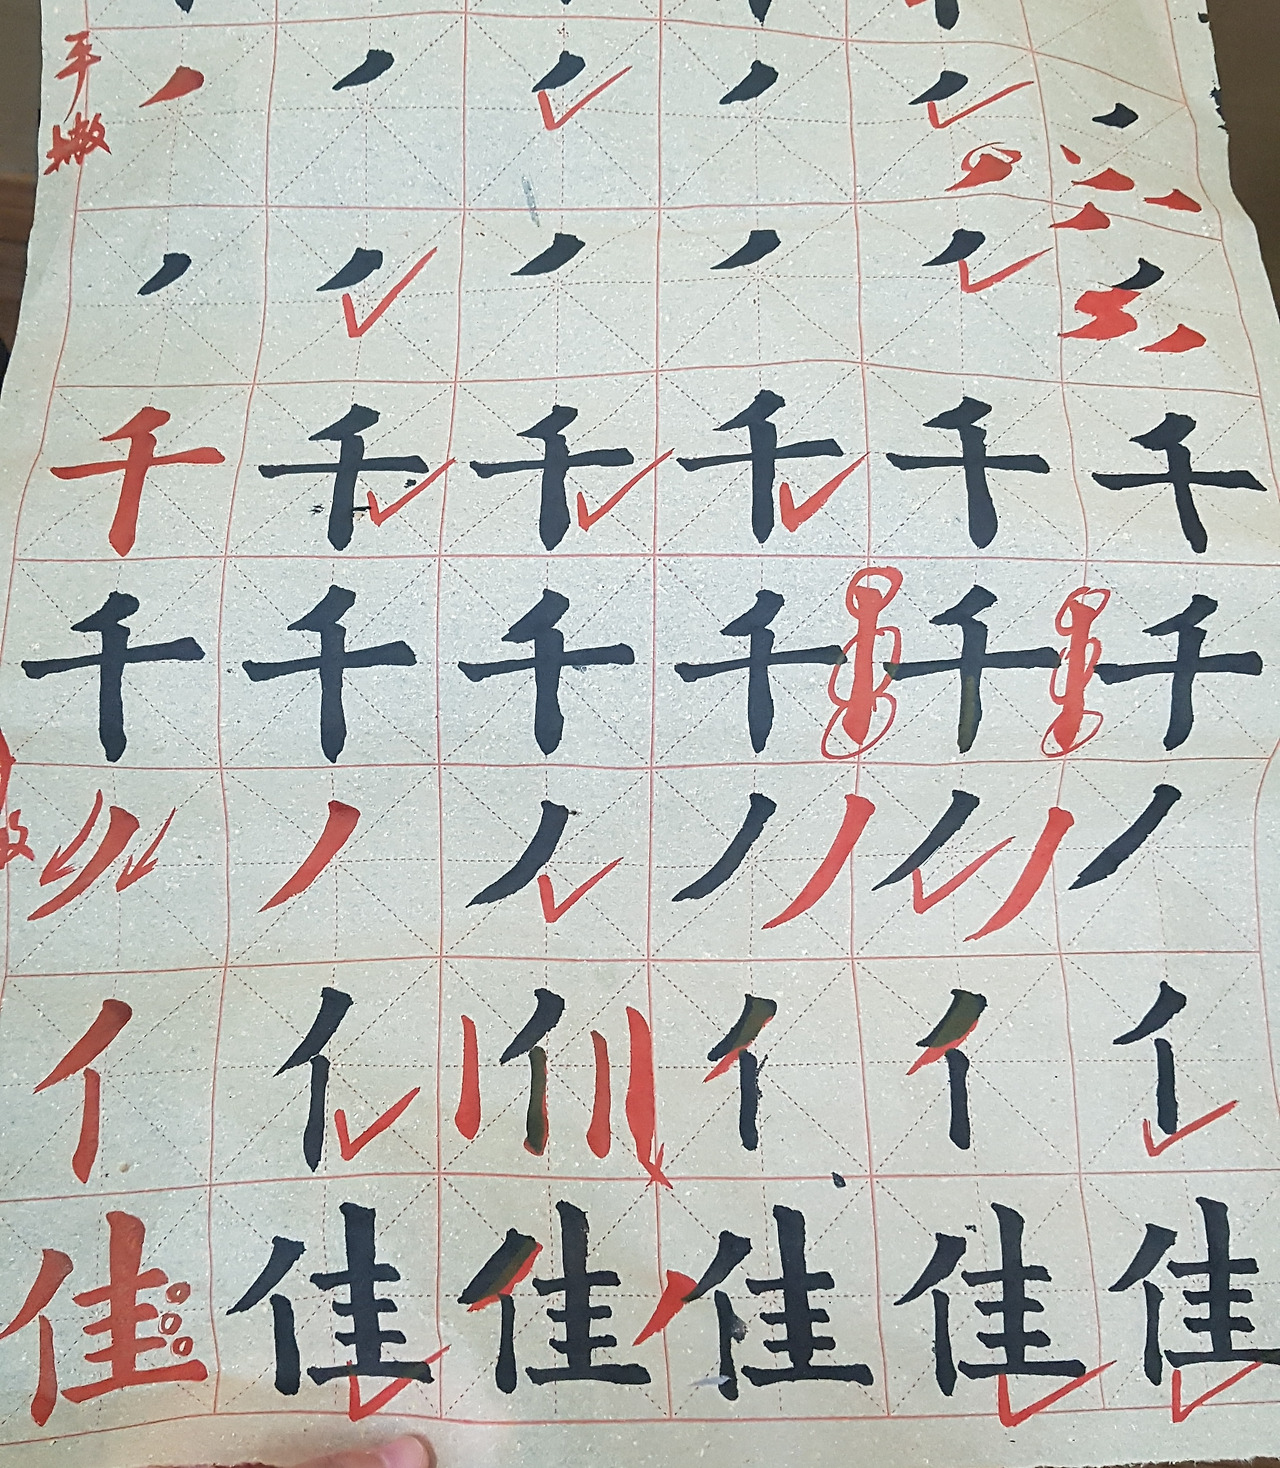 平撇
千千千千千千
千千千千千千
亻亻亻亻亻亻
佳佳佳佳佳佳